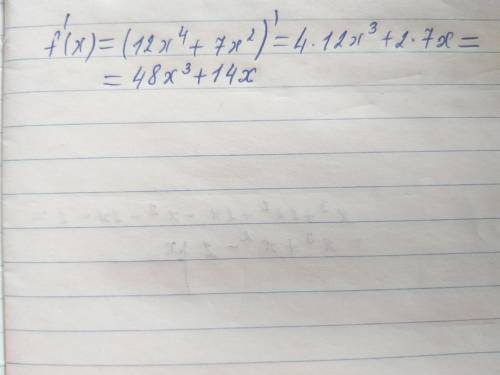 f'(x) = (12x⁴ + 7x²)' = 4·12x³ + 2·7x =
= 48x³ + 14x